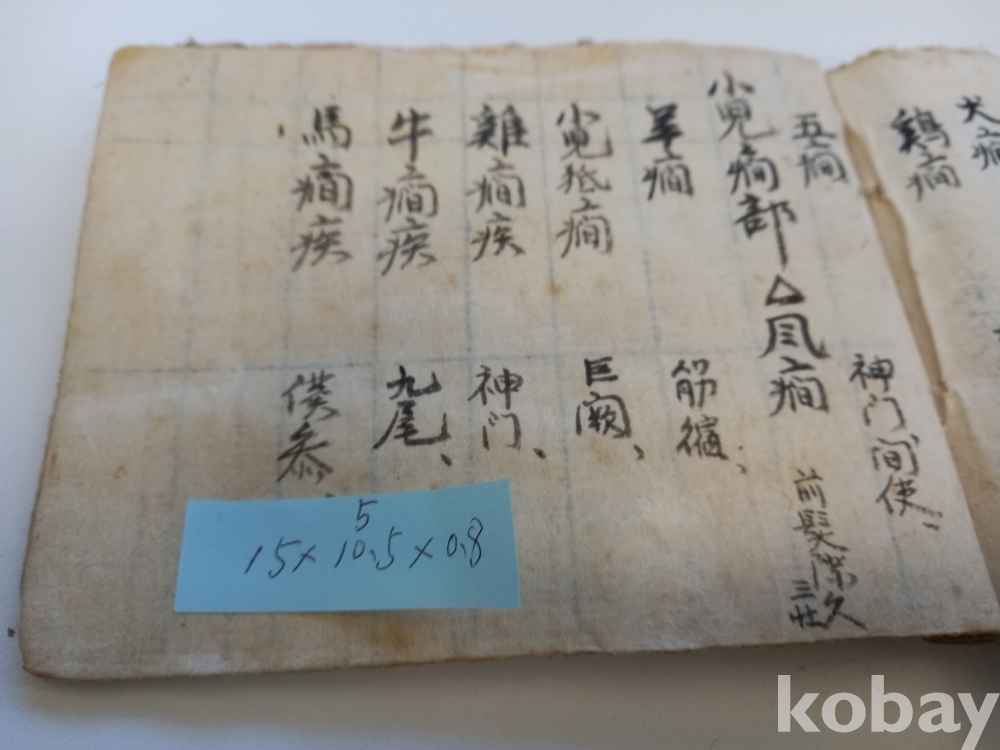 犬癇
鷄癇
五癇
神门 间使、
小兒癇部 △凬癇
前髮際久
三壯
羊癇 筋縮、
小兒癇 巨阙、
雞癇疾 神门、
牛癇疾 九尾、
馬癇疾 僕參、
5
15×10.5×0.8
kobay